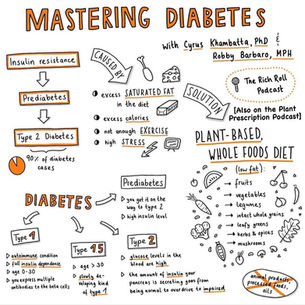 MASTERING DIABETES
with Cyrus Khambatta, PhD &
Robby Barbaro, MPH
Insulin resistance
Prediabetes
Type 2 Diabetes
90% of diabetes
cases
CAUSED BY
excess SATURATED FAT
in the diet
excess calories
not enough EXERCISE
high STRESS
SOLUTION
The Rich Roll
Podcast
[Also on the Plant
Prescription Podcast]
PLANT-BASED,
WHOLE FOODS DIET
(low fat):
fruits
vegetables
legumes
intact whole grains
leafy greens
herbs & spices
mushrooms
animal products,
processed foods,
oils
DIABETES
Prediabetes
you get it on the
way to type 2
high insulin level
Type 1
autoimmune condition
full insulin dependence
age 0-30
you express multiple
antibodies to the beta cells
Type 1.5
age > 30
slowly de-
veloping
kind of
type 1
Type 2
glucose levels in the
blood are high
the amount of insulin your
pancreas is secreting goes from
being normal to overdrive to impaired